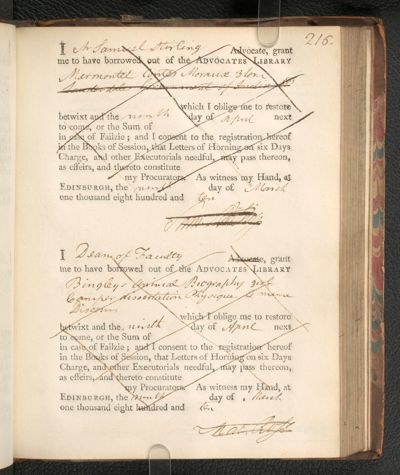 216.
I Mr Samuel Stirling Advocate, grant
me to have borrowed out of the ADVOCATES LIBRARY
Marmontel Contes Moraux 3 Tom
which I oblige me to restore
betwixt and the ninth day of April next
to come, or the Sum of
in case of Failzie; and I consent to the registration hereof
in the Books of Session, that Letters of Horning on six Days
Charge, and other Executorials needful, may pass thereon,
as effeirs, and thereto constitute
my Procurators. As witness my Hand, at
EDINBURGH, the ninth day of March
one thousand eight hundred and ten
I Dean of Faculty Advocate, grant
me to have borrowed out of the ADVOCATES LIBRARY
Bingley's Animal Biography 3
Camper dissertation Physique &
Discours
which I oblige me to restore
betwixt and the ninth day of April next
to come, or the Sum of
in case of Failzie; and I consent to the registration hereof
in the Books of Session, that Letters of Horning on six Days
Charge, and other Executorials needful, may pass thereon,
as effeirs, and thereto constitute
my Procurators. As witness my Hand, at
EDINBURGH, the ninth day of March
one thousand eight hundred and ten